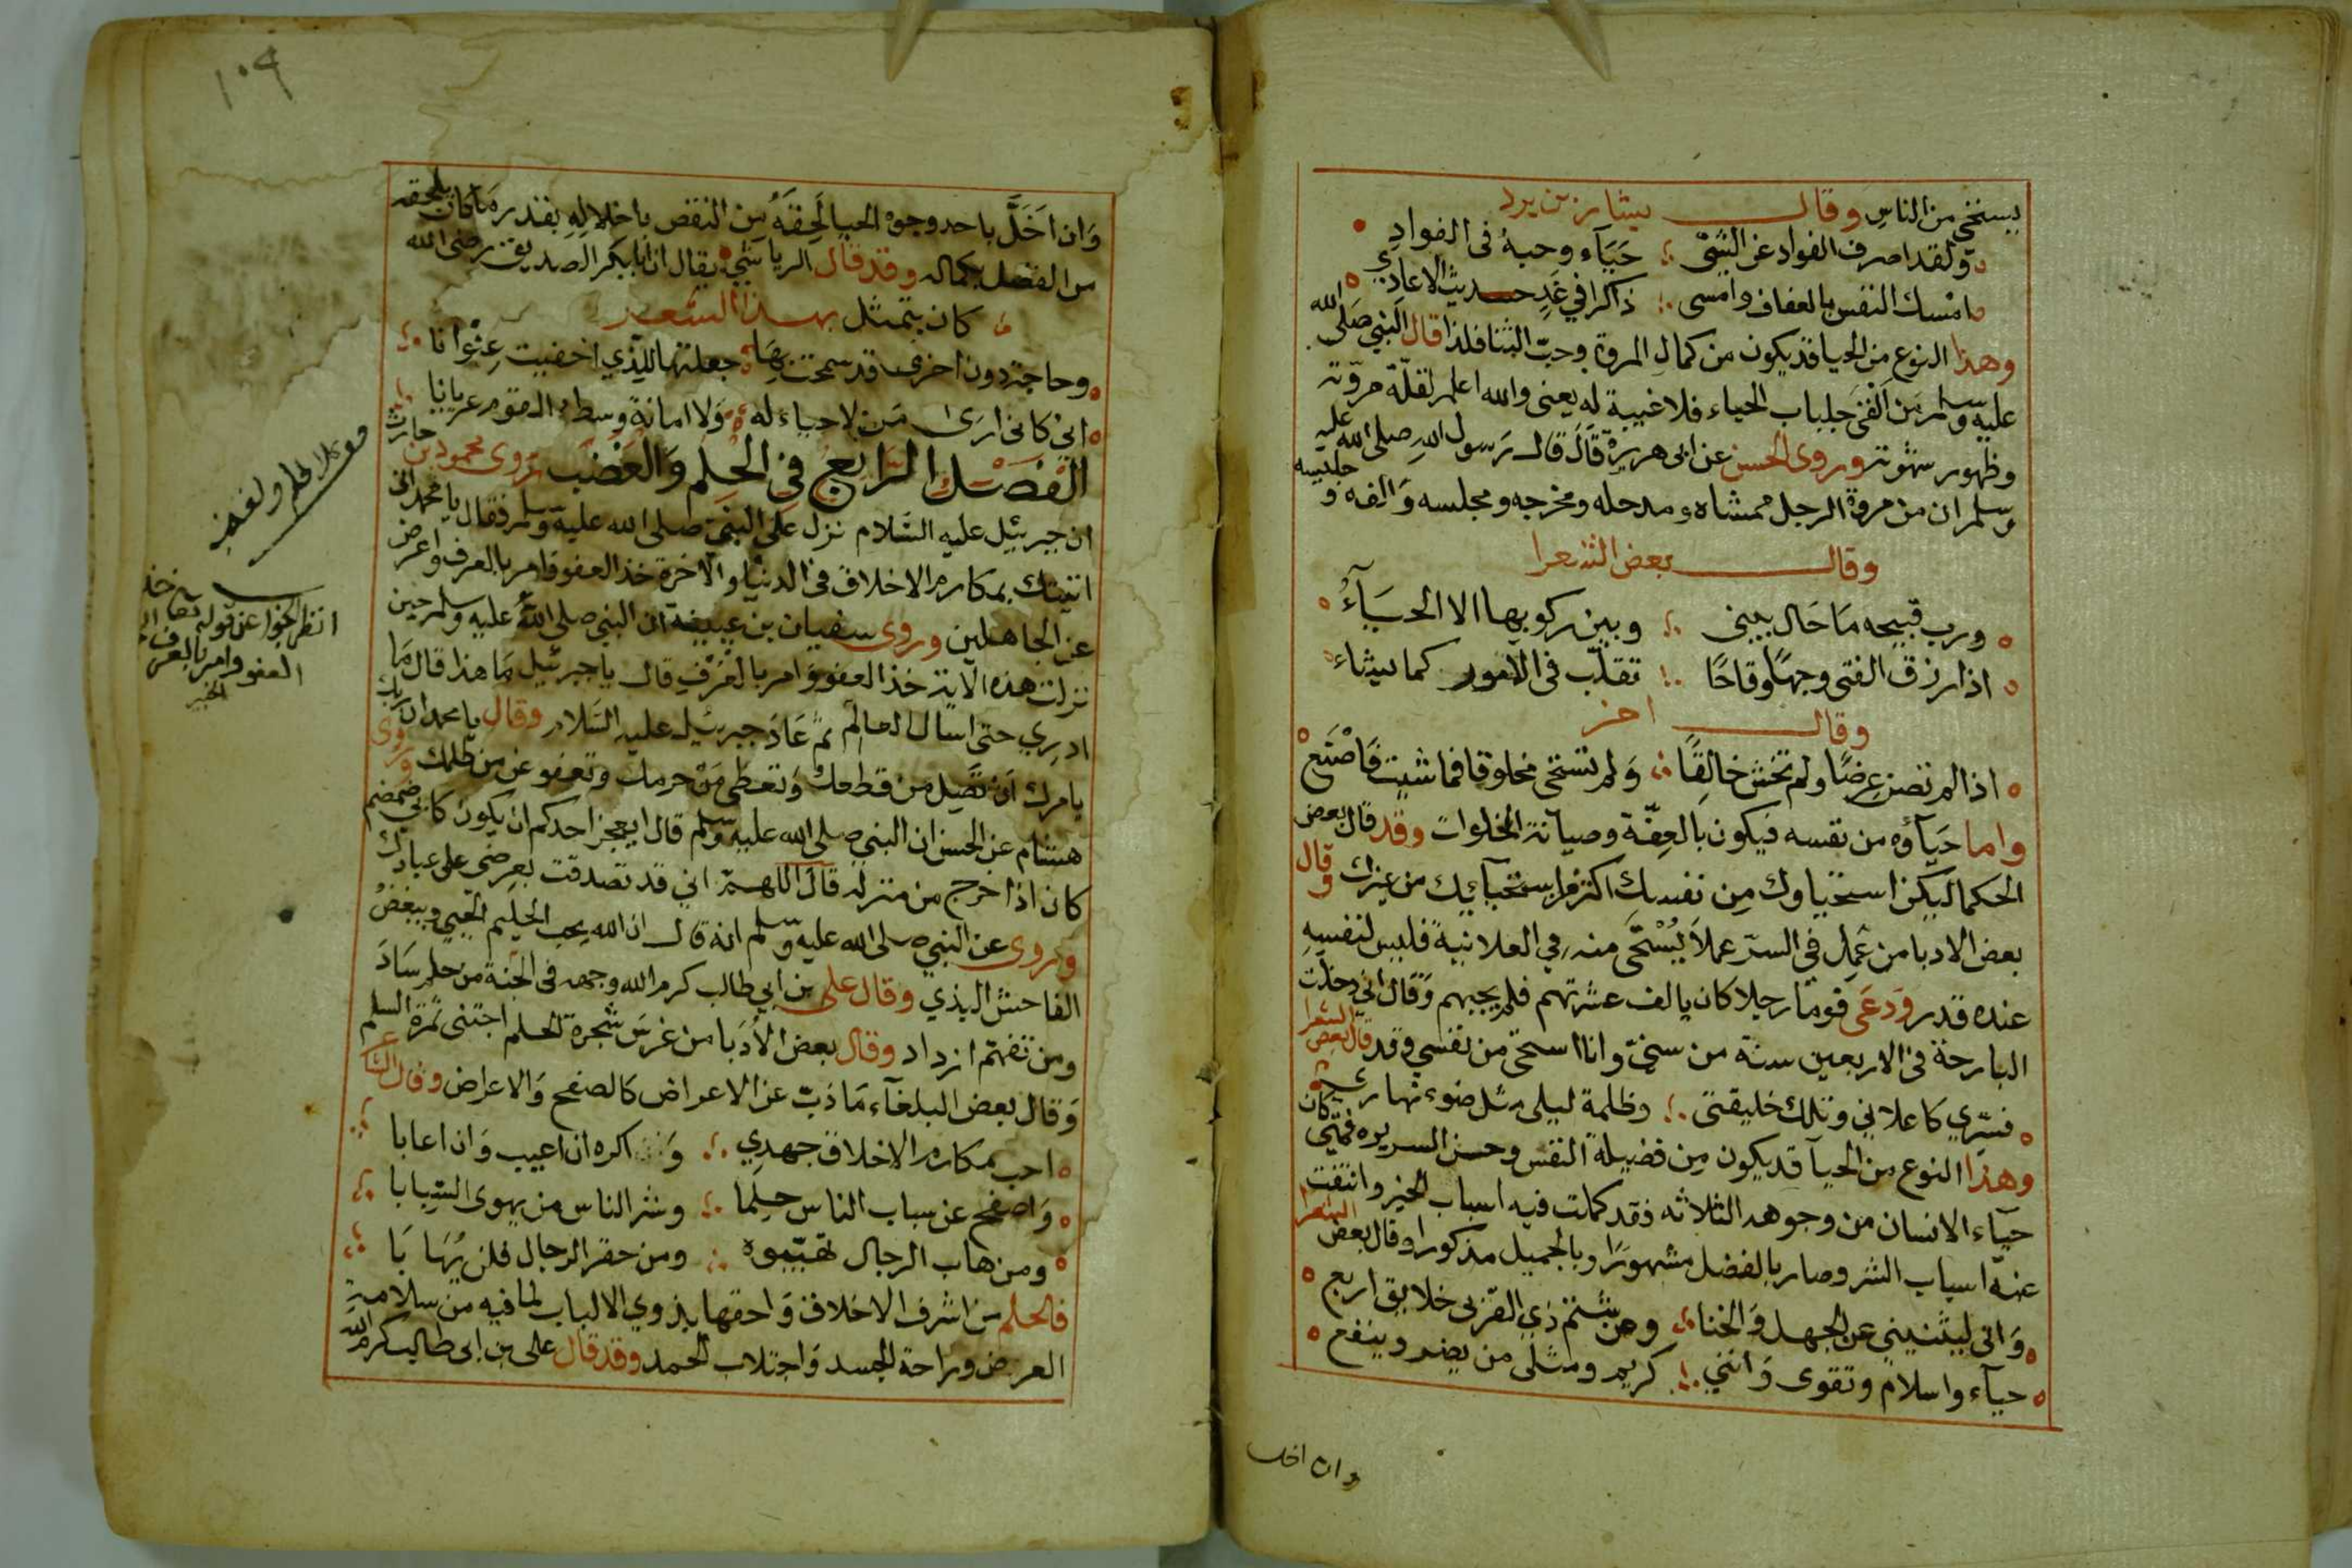 يستحي من الناس وقال بشار بن برد
ولقد اصرف الفواد عن الشي حَيَآء وحبهُ فى الفوادِ
امسك النفس بالعفاف وامسى ذاكرا في غَدٍ حديث الاعادي
وهذا النوع من الحيا قد يكون من كمال المروة وحبّ الثنا فلذا قال النبي صَلى الله
عليه وسلم مَن اَلقى جلباب الحياء فلا غيبة له يعنى والله اعلم لقلّة مروّته
وظهور شهوته وروى الحسن عن ابى هريرة قَالَ قال رَسول الله صلى الله عليه
وسلم ان من مروة الرجل ممشاه ومدخله ومخرجه ومجلسه وَالفه وجليسه
وقال بعض الشعرا
ورب قبيحه مَا حَال بينى وبين ركوبها الا الحيَآءُ
اذا رزق الفتى وجهًا وقاحًا تقلّب فى الامور كما يشاء
وقال اخر
اذا لم تصن عِرضًا ولم تخش خالِقًا وَلم تستحى مخلوقا فما شيت فَاصْنَع
واما حَيَآؤه من نفسه فيكون بالعِفّة وصيانة الخلوات وقد قال بعض
الحكما ليكن استحياوك مِن نفسك اكثر من استحيآئك من غيرك وقال
بعض الادبا من عَمِل فى السرّ عملاً يُسْتَحَى منه فِي العلانية فليس لنفسِهِ
عنده قدر وَدعَى قومًا رجلا كان يالف عشرتهم فلم يجبهم وَقَال انى دخلت
البارحة فى الاربعين سنة من سنيّ وانا استحى من نفسي وقد قال بعض الشعرا
فسرّي كاعلاني وتلك خليقتى وظلمة ليلى مثل ضوء نهاري
وهذا النوع من الحيآ قد يكون مِن فضيلة النفس وحسن السريره فمتى كان
حيآء الانسان من وجوهه الثلاثه فقد كملت فيه اسباب الخير وانتفت
عنه اسباب الشر وصار بالفضل مشهورًا وبالجميل مذكورا وقال بعض الشعرا
وَانى ليثنيني عن الجهل وَالخنا وعن شتم ذي القربى خلايق اربع
حيآء واسلام وتقوى وَانني كريم ومثلى من يضر وينفع
وان اخل
١٠٩
وَان اَخَلَّ باحد وجوه الحيا لَحِقهُ من النقص باخلالِهِ بقدر مَا كان يلحقه
من الفضل بكماله وقد قال الرياشي يقال ان ابا بكر الصديق رضى الله
كان يتمثل بهذا الشعر
وحاجة دون اخرى قد سمحت بِهَا جعلتها للذي اخفيت عِنْوَانا
انى كانى ارَى مَن لا حياء له وَلا امانة وسط القوم عريانا
الفصْل الرَّابع في الحِلم وَالغَضب رَوى محمود بن حارث
ان جبرئيل عليه السَّلام نزل على النبى صلى الله عليه وسلم فقال يا محمد انى
اتيتك بمكارم الاخلاق فى الدنيا والاخرة خذ العفو وامر بالعرف واعرض
عن الجاهلين وروى سفيان بن عيينة ان النبي صلى اللهُ عليه وسلم حين
نزلت هذه الاية خذ العفو وَامر بالعُرْفِ قال يا جبرئيل مَا هذا قال مَا
ادرِي حتى اسال العالم ثمّ عَادَ جبرئيل عليه السَلام وقال يا محمد ان ربك
يامرك اَن تَصِل من قطعك وَتعطى مَنْ حرمك وتعفو عن من ظلمك وَروى
هشام عن الحسن ان النبي صلى الله عليه وسلم قال ايعجز احدكم ان يكون كابى ضمضم
كان اذا خرج من منزله قَالَ اللهمّ انى قد تصدقت بعِرضى على عبادك
وَروى عن النبي صلى الله عليه وسلم انه قال ان الله يحب الحليم الحيي ويبغضُ
الفاحش البذي وقال على بن ابي طالب كرم الله وجهه فى الجنة من حلم سَادَ
ومن تفهّم ازداد وقال بعض الادَبا من غرسَ شجرة الحلم اجتنى ثمَرَة السلم
وَقال بعض البلغآء مَا ذبّ عن الاعراض كَالصفح وَالاعراض وقال الشاعر
احب مكارم الاخلاق جهدِي وَ اكره ان اعيب وَان اعابا
وَاصفح عن سباب الناس حِلما وشر الناس من يهوى السِّبابا
ومن هاب الرجال تهيّبوه ومن حقر الرجال فلن يُهَابَا
فالحلم من اشرف الاخلاق وَاحقها بذوي الالباب لما فيه من سلامة
العرض وراحة الجسد وَاجتلاب الحمد وقد قال على بن ابى طالب كرم الله
انظر الجواب عن قوله تعالى خذ
العفو وامر بالعرف